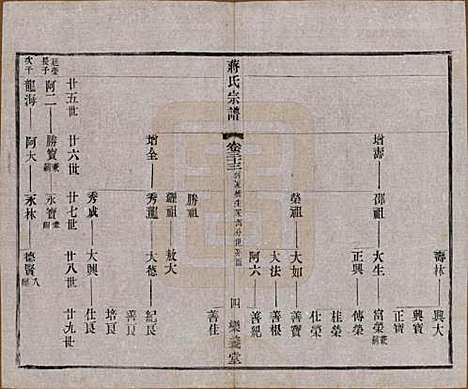 壽林
興大
興寶
正寶
增壽
邵祖
大生
富榮
傳榮
正興
桂榮
仕榮
榮祖
大如
善寶
大法
善根
阿六
善紀
蔣氏宗譜
卷三十三
四
樂善堂
勝祖
善佳
繼祖
敖大
增全
秀龍
大德
紀良
培良
秀成
大興
善良
仕良
廿五世
廿六世
廿七世
廿八世
廿九世
長子
阿二
勝寶
永寶
次子
龍海
阿大
永林
德賢